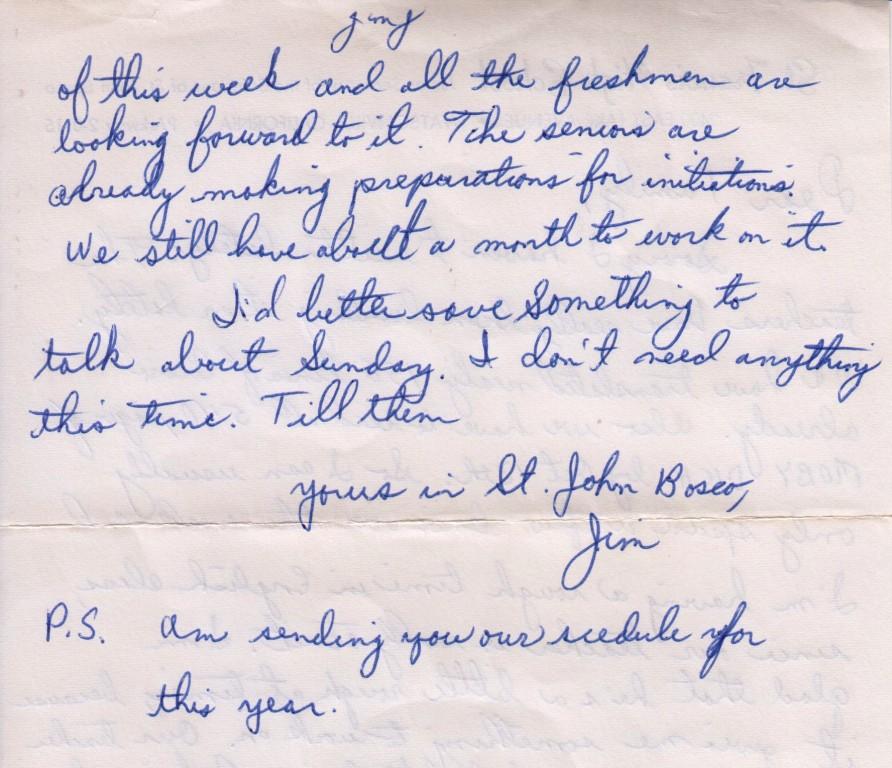 of this week and all the freshmen are
looking forward to it. The seniors are
already making preparations for initiations.
We still have about a month to work on it.
I'd better save something to
talk about Sunday. I don't need anything
this time. Till them
yours in St. John Bosco,
Jim
P.S. Am sending you our scedule for
this year.